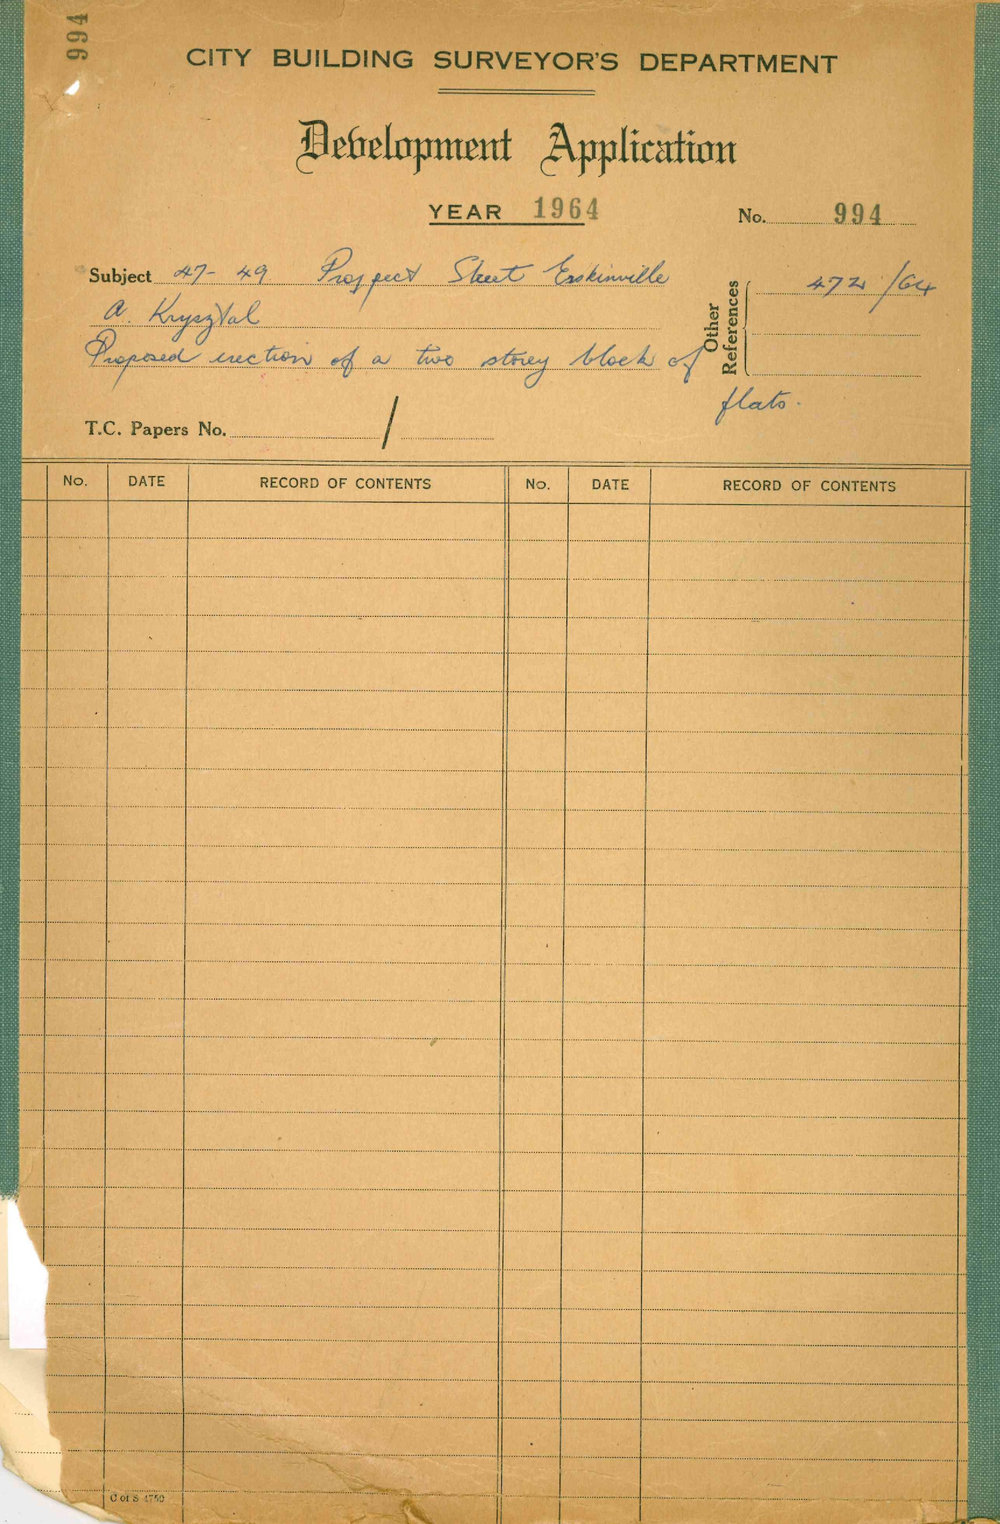 994
CITY BUILDING SURVEYOR'S DEPARTMENT
Development Application
YEAR 1964
No. 994
Subject 47-49 Prospect Street Erskinville
A. Krysztal
Proposed erection of a two storey block of
flats.
Other References 472/64
T.C. Papers No. /
No. DATE RECORD OF CONTENTS No. DATE RECORD OF CONTENTS
C of S 4750